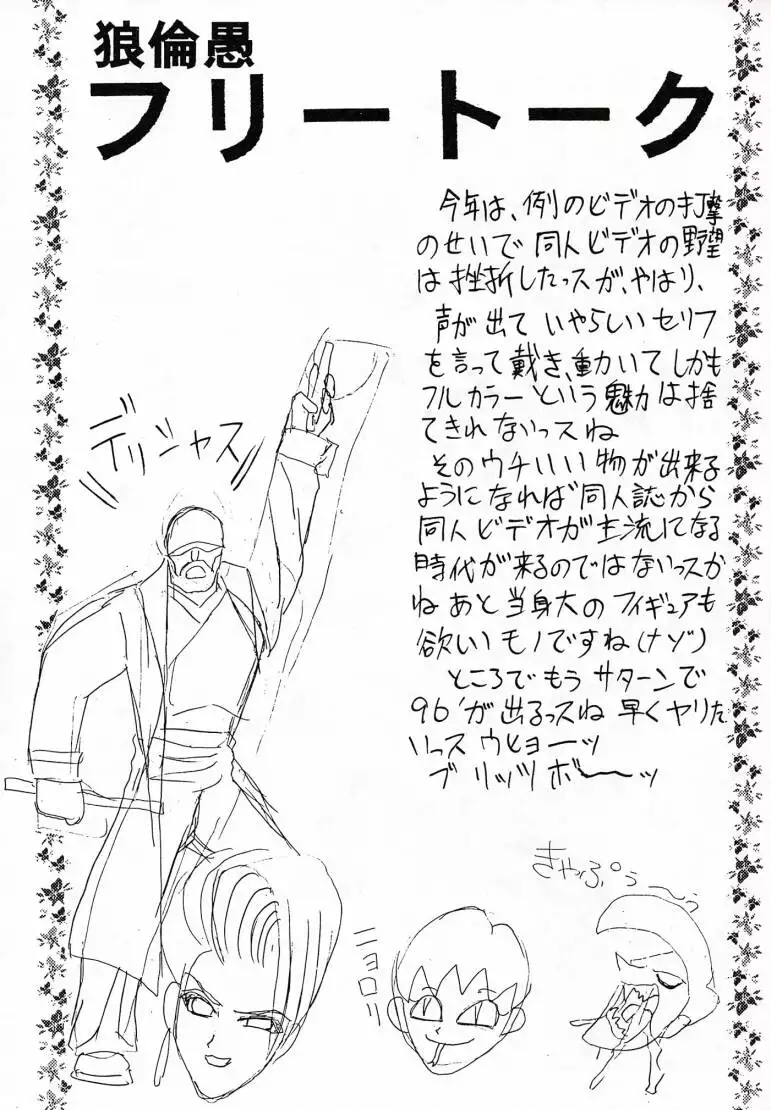 狼倫愚
フリートーク
今年は、例のビデオの打撃
のせいで同人ビデオの野望
は挫折したっスが、やはり、
声が出ていやらしいセリフ
を言って戴き、動いてしかも
フルカラーという魅力は捨
てきれないっスね
そのウチいい物が出来る
ようになれば同人誌から
同人ビデオが主流になる
時代が来るのではないっスか
ねあと当身大のフィギュアも
欲しいモノですね(ナゾ)
ところでもうサターンで
96'が出るっスね早くヤリた
いっスウヒョーッ
ブリッツボーーッ
デリシャス
ニョロリ
きゃぷぅ〜